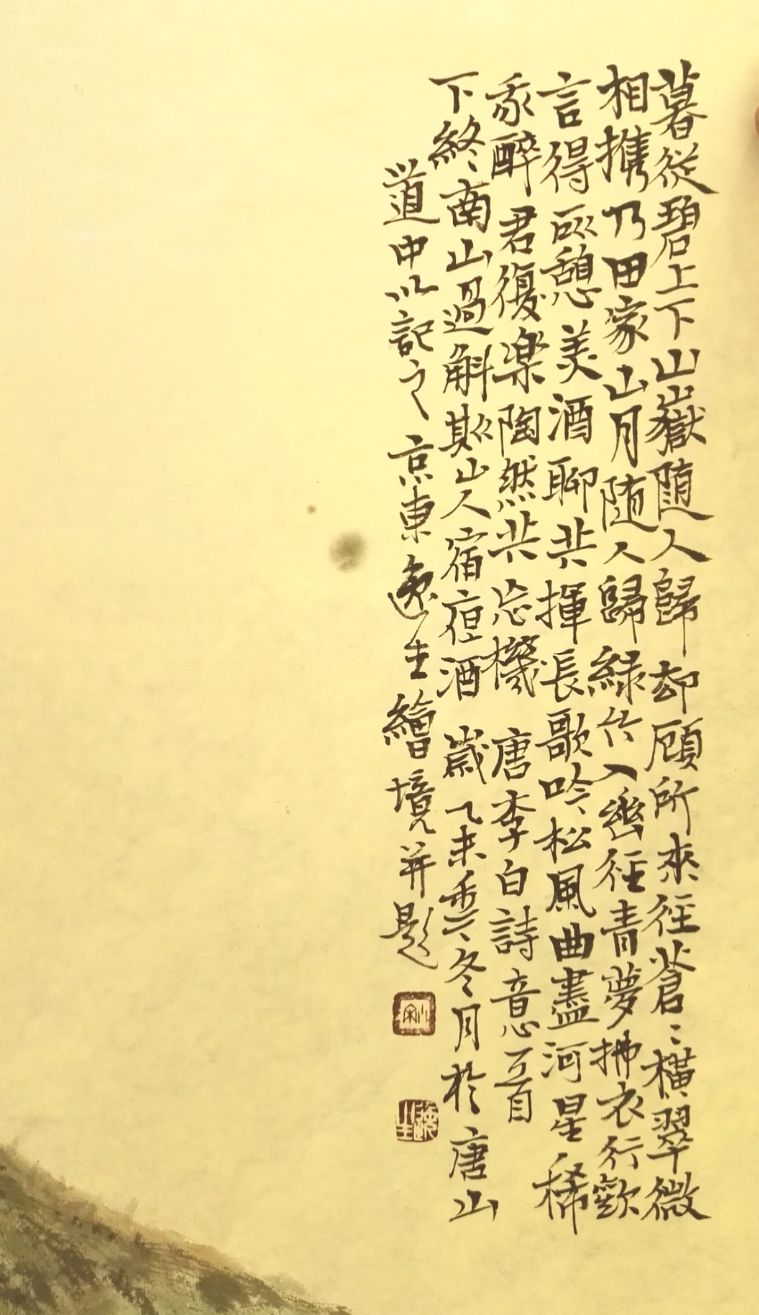 暮從碧上下山嶽随人歸却顧所来徑蒼〻横翠微
相携乃田家山月随人歸緑竹入徑青夢拂衣行歡
言得所憩美酒聊共揮長歌吟松風曲盡河星稀
我醉君復楽陶然共忘機 唐李白詩意一首
下終南山過斛斯山人宿酒 歲乙未季冬月於唐山
道中以記之京東逸生繪境并題